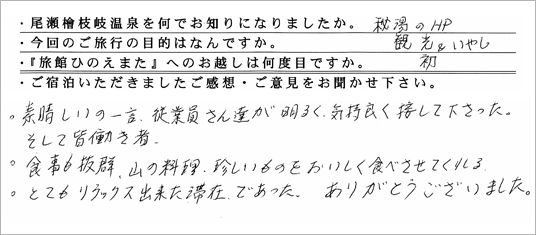 ・尾瀬檜枝岐温泉を何でお知りになりましたか。 秘湯のHP
・今回のご旅行の目的はなんですか。 観光&いやし
・『旅館ひのえまた』へのお越しは何度目ですか。 初
・ご宿泊いただきましたご感想・ご意見をお聞かせ下さい。
○素晴しいの一言、従業員さん達が明るく、気持良く接して下さった。
そして皆働き者。
○食事も抜群、山の料理・珍しいものをおいしく食べさせてくれる
○とてもリラックス出来た滞在であった。 ありがとうございました。